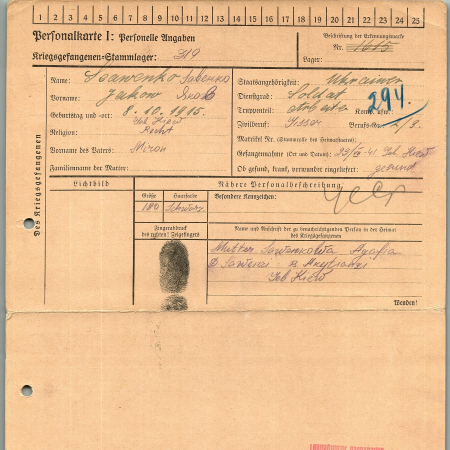 1 2 3 4 5 6 7 8 9 10 11 12 13 14 15 16 17 18 19 20 21 22 23 24 25
Personalkarte I: Personelle Angaben
Kriegsgefangenen-Stammlager: 319
Beschriftung der Erkennungsmarke
Nr. 1615
Lager:
Des Kriegsgefangenen
Name: Sawenko Савенко
Vorname: Jakow Яков
Geburtstag und -ort: 8.10.1915.
Geb Kiew
Religion:
Vorname des Vaters: Miron
Familienname der Mutter:
Staatsangehörigkeit: Ukrainer
Dienstgrad: Soldat
Truppenteil: Kom.
294.
Zivilberuf: Berufs-Gr.:
Matrikel Nr. (Stammrolle des Heimatstaates):
Gefangennahme (Ort und Datum): Geb. Kiew
Ob gesund, krank, verwundet eingeliefert: gesund
Lichtbild
Nähere Personalbeschreibung
Größe Haarfarbe Besondere Kennzeichen:
180 Schwarz
Fingerabdruck
des rechten! Zeigefingers
Name und Anschrift der zu benachrichtigenden Person in der Heimat
des Kriegsgefangenen
Mutter: Agafia
Geb Kiew
Wenden!